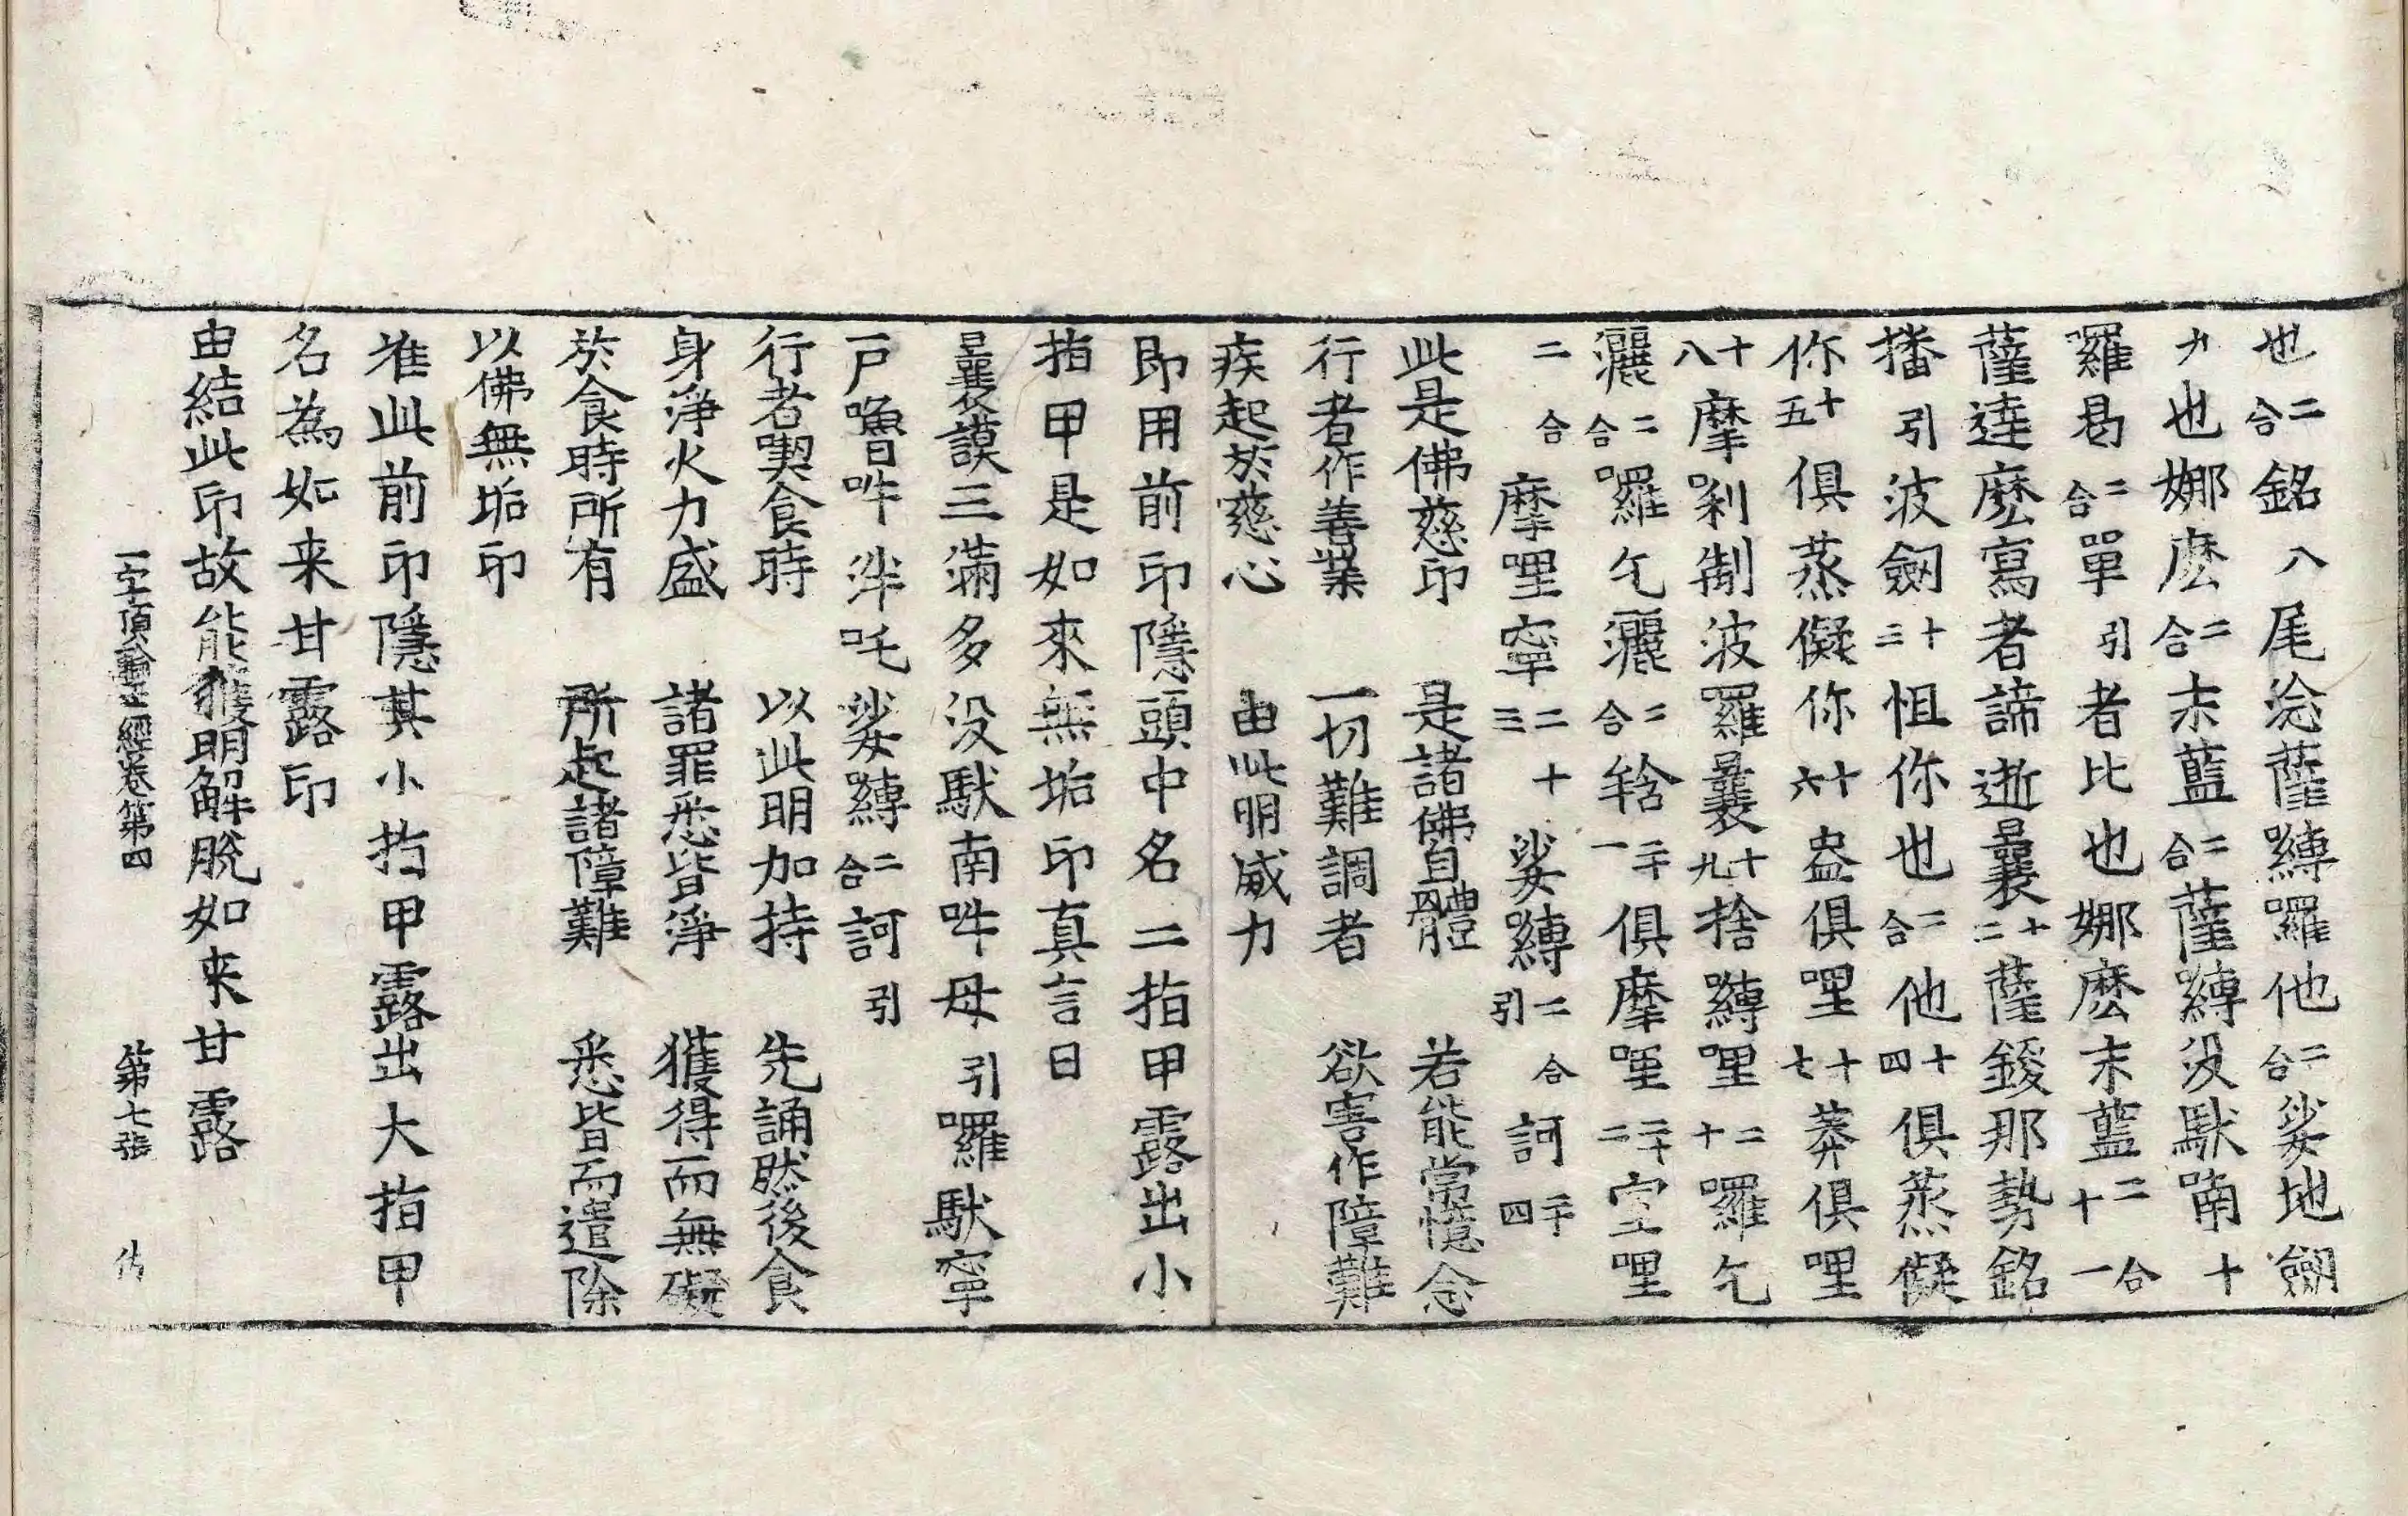 也二合銘八尾淰薩嚩囉他二合娑地劒
九也娜麽二合末藍二合薩嚩沒馱喃十
囉曷二合單引者比也娜麽末藍二合十一
薩達麽寫者諦逝曩十二薩鍐那勢銘
播引波劒十三怛你也二合他十四俱蒸儗
你十五俱蒸儗你十六盎俱哩十七莽俱哩
十八摩剎制波羅曩十九捨嚩哩二十囉乞
灑二合囉乞灑二合鎋二十一俱摩哩二十二室哩
二合摩哩寧二十三娑嚩二合引訶二十四
此是佛慈印　是諸佛自體　若能常憶念
行者作善業　一切難調者　欲害作障難
疾起於慈心　由此明威力
即用前印隱頭中名二指甲露出小
指甲是如來無垢印真言曰
曩謨三滿多沒馱南吽母引囉馱寧
一戶嚕吽泮吒娑嚩二合訶引
行者喫食時　以此明加持　先誦然後食
身淨火力盛　諸罪悉皆淨　獲得而無礙
於食時所有　所起諸障難　悉皆而遣除
以佛無垢印
准此前印隱其小指甲露出大指甲
名為如来甘露印
由結此印故能獲明解脫如来甘露
一字頂輪王經卷第四　第七張